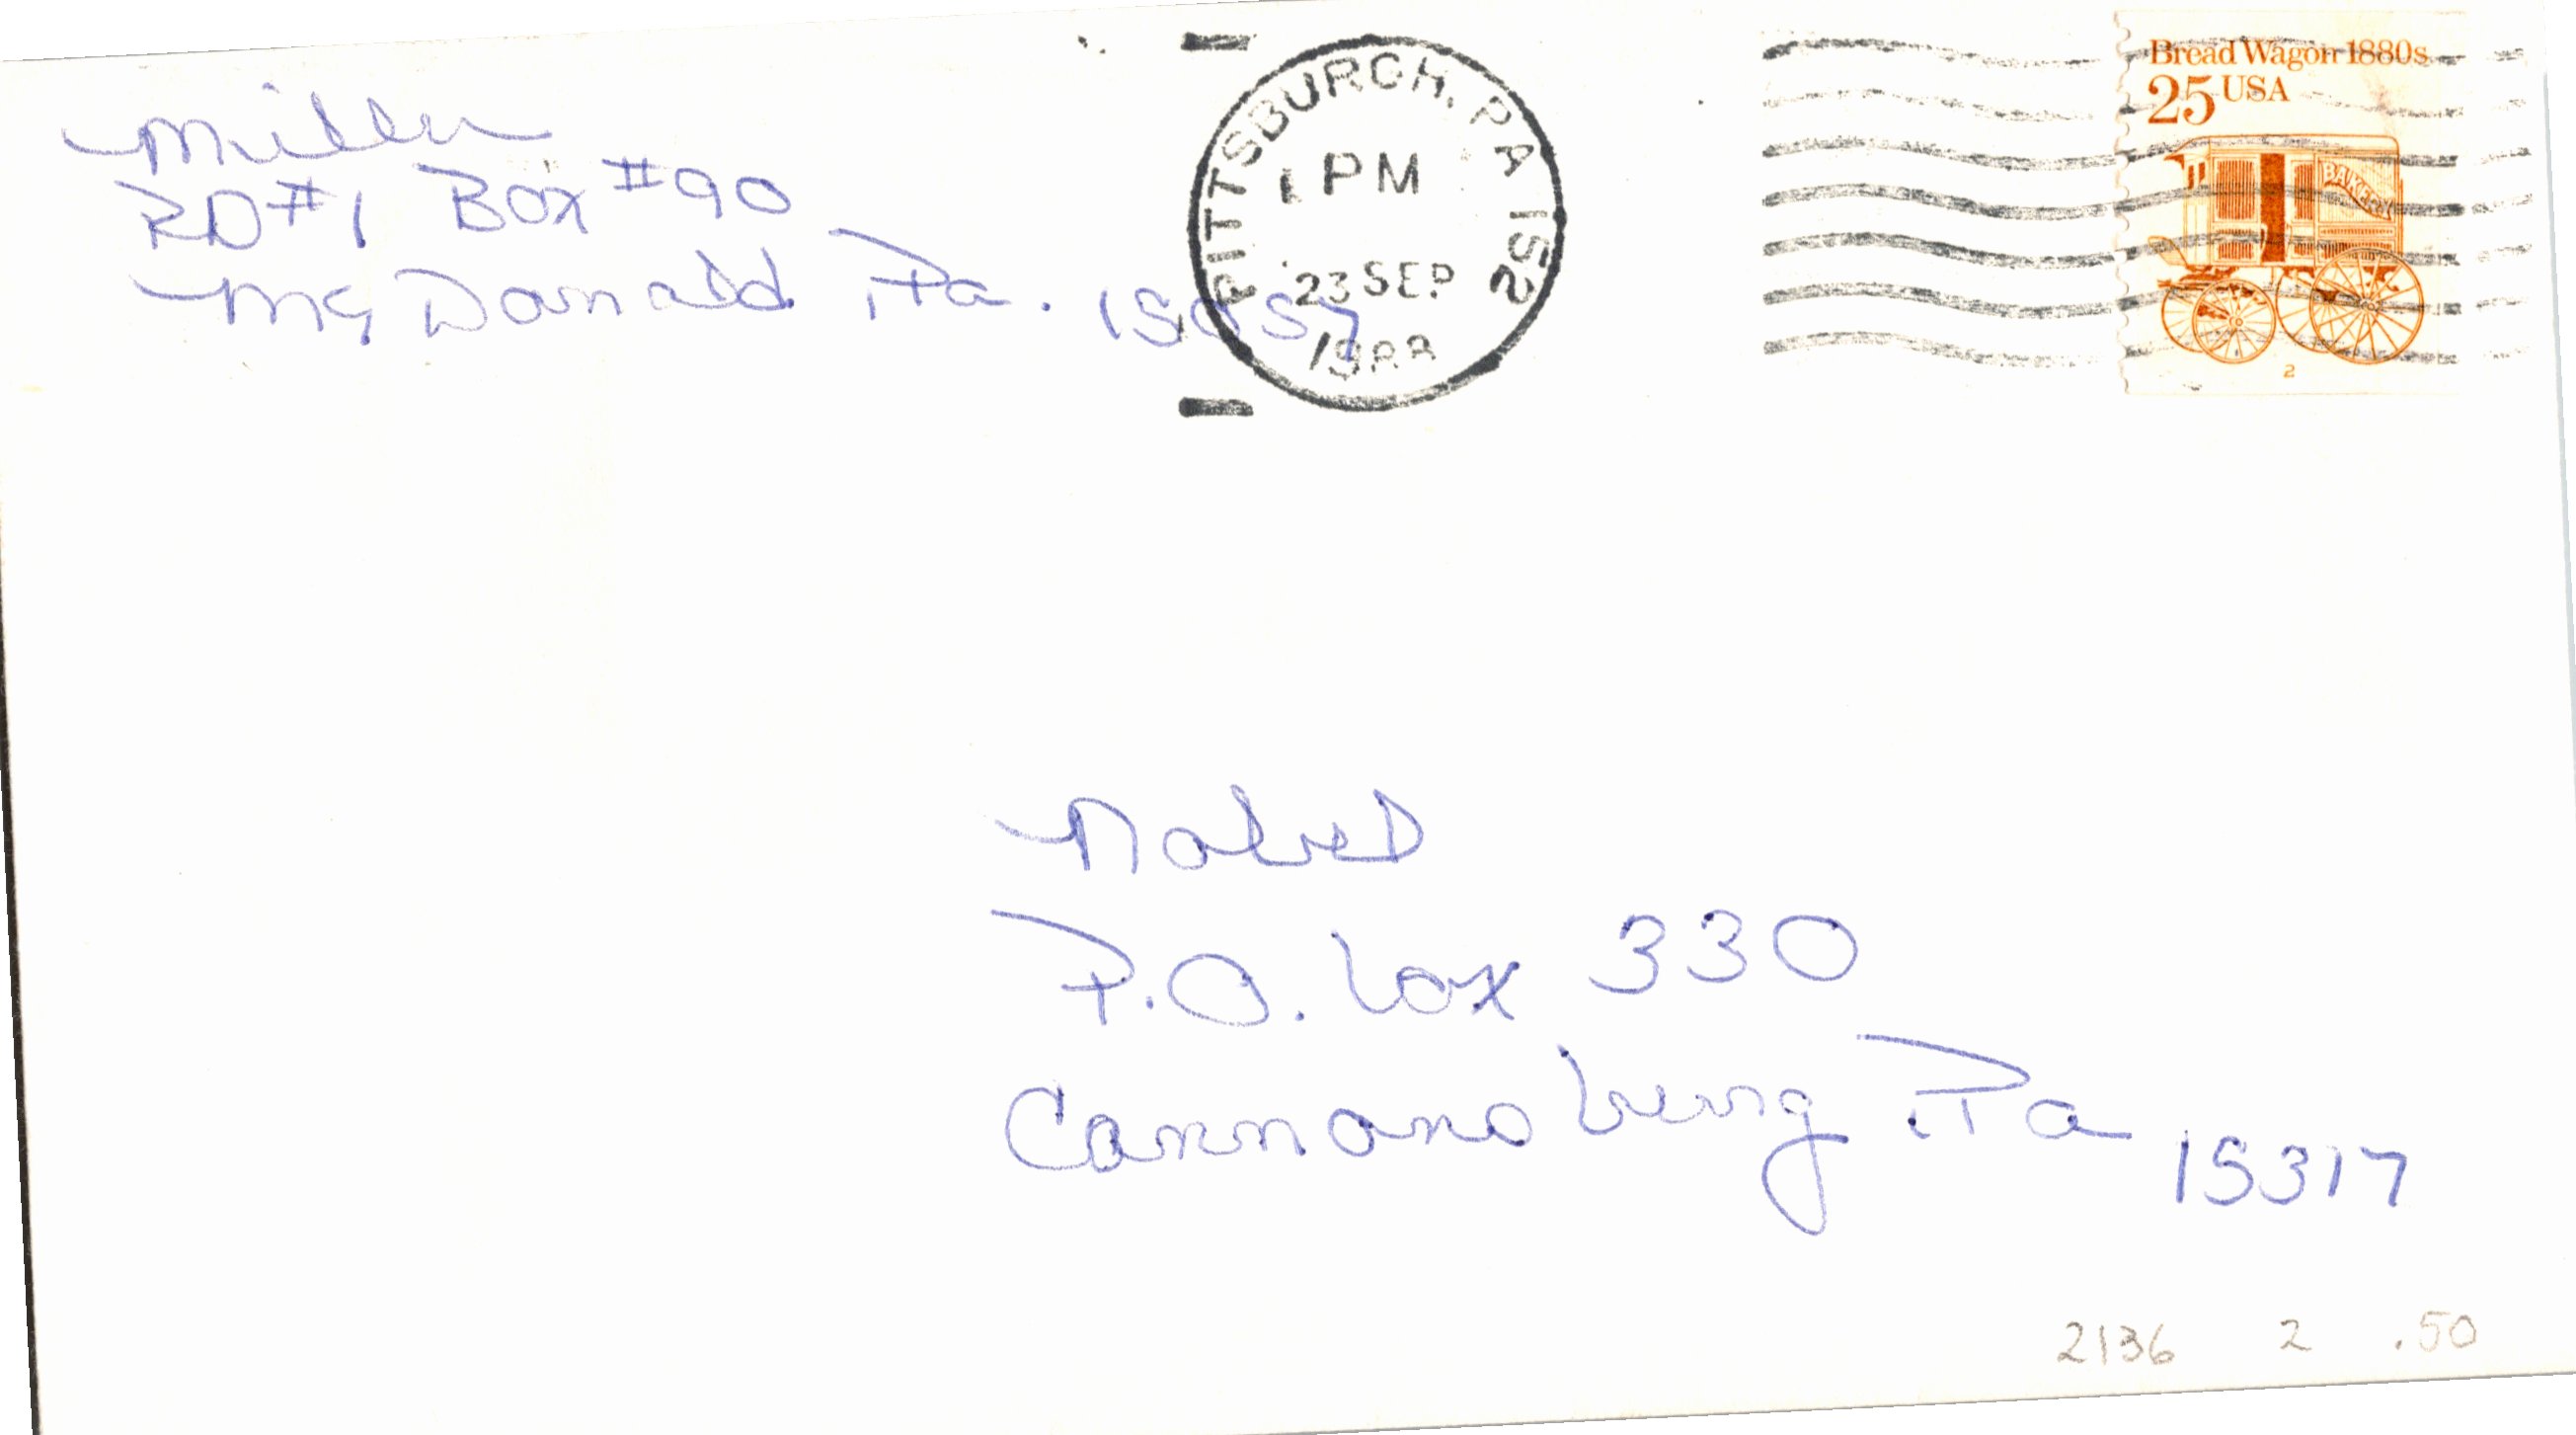 Miller
RD#1 Box #90
Mc Donald Pa. 15057
PITTSBURGH, PA 152
PM
23 SEP
1988
Bread Wagon 1880s
25 USA
BAKERY
2
P.O. box 330
Cannonsburg Pa 15317
2136 2 .50